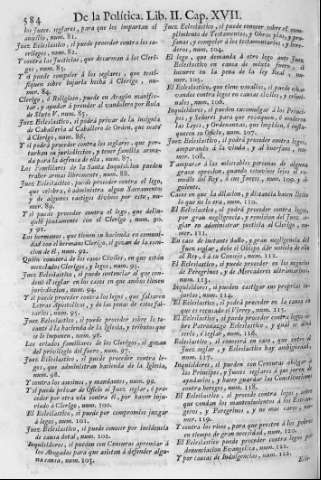 584
De la Política. Lib. II. Cap. XVII.
los Jueces seglares, para que les impartan el
auxilio, num. 81.
Juez Eclesiastico, si puede proceder contra los sa-
crilegos, num. 82.
Y contra las Justicias, que
num. 83.
Y si puede compeler á los seglares, que testi-
fiquen sobre injuria hecha á Clerigo, nu-
mer. 84.
Clerigo, ó Religioso, puede en Aragón manifes-
tar, y ayudar á prender al vandolero por Bula
de Sixto V. num. 85.
Juez Eclesiastico, si podrá privar de la insignia
de Caballería al Caballero de Orden, que mató
á Clerigo, num. 86.
Y si podrá proceder contra los seglares, que per-
turban su jurisdiccion, y poner familia arma-
da para la defensa de ella, num. 87.
Los Familiares de la Santa Inquisicion pueden
traher armas libremente, num. 88.
Juez Eclesiastico, puede proceder contra el lego,
que celebra, ó administra algun Sacramento
y de algunos castigos divinos por esto, nu-
mer. 89.
Y si puede proceder contra el lego, que delin-
quió juntamente con el Clerigo, num. 90.
y 91.
Los hermanos, que tienen su hacienda en comuni-
dad con el hermano Clerigo, si gozan de la esen-
cion de él, num. 92.
Quién conocerá de los casos Civiles, en que están
mezclados Clerigos, y legos, num. 93.
Juez Eclesiastico, si puede sentenciar al que con-
denó el seglar en los casos en que ambos tienen
jurisdiccion, num. 94.
Y si puede proceder contra los legos, que falsean
Letras Apostolicas, y de las penas de estos fal-
sarios, num. 95.
Juez Eclesiastico, si puede proceder sobre lo to-
cante á la hacienda de la Iglesia, y tributos que
se le imponen, num. 96.
Los criados familiares de los Clerigos, si gozan
del privilegio del fuero, num. 97.
Juez Eclesiastico, si puede proceder contra le-
gos, que administran hacienda de la Iglesia,
num. 98.
Y contra los asesinos, y mandantes, num. 99.
Y si puede privar de Oficio al Juez seglar, é pro-
ceder por otra vía contra él, por haber inju-
riado á Clerigo, num. 100.
El Eclesiastico, si puede por compromiso juzgar
á legos, num. 101.
Juez Eclesiastico, si puede conocer por incidencia
de causa total, num. 102.
Inquisidores, si pueden con Censuras apremiar á
los Abogados para que asistan á defender algu-
na causa, num. 103.
Juez Eclesiastico, si puede conocer sobre el cum-
plimiento de Testamentos, y Obras pias, y pren-
der, y compeler á los testamentarios, y here-
deros, num. 104.
El lego, que demanda á otro lego ante Juez
Eclesiastico en causa de mixto fuero, si
incurre en la pena de la ley Real, nu-
mer. 105.
El Eclesiastico, que tiene vasallos, si puede exer-
citar con ellos en causas civiles, y criminales,
num. 106.
Inquisidores, si pueden excomulgar á los Princi-
pes, y Señores para que revoquen, ó moderen
las Leyes, y Ordenanzas, que impidan, ó inti-
quen su Oficio, num. 107.
Juez Eclesiastico, si podrá proceder contra legos,
amparando á la viuda, y al huerfano, nu-
mer. 108.
Y amparar á las miserables personas de alguna
grave opresion, quando estuviese lejos el re-
medio del Rey, ó sus Jueces, num. 109.
siguiente.
Casos en que la dilacion, y distancia hacen licito
lo que no lo era, num. 110.
El Eclesiastico, si podrá proceder contra legos,
por gran negligencia, y remision del Juez se-
glar en administrar justicia al Clerigo, nu-
mer. 111.
En caso de instante daño, y gran negligencia del
Juez seglar, debe el Obispo dár noticia de ello
al Rey, ó á su Consejo, num. 112.
El Eclesiastico, si puede proceder en los negocios
de Peregrinos, y de Mercaderes ultramarinos,
num. 113.
Inquisidores, si pueden castigar sus propias in-
jurias, num. 114.
El Eclesiastico, si podrá proceder en la causa en
que es recusado el Virrey, num. 115.
El Eclesiastico, si podrá proceder contra legos so-
bre Patronazgo Eclesiastico, y qual se dirá
serlo, é laycal, num. 116.
Eclesiastico, si conocerá en caso, que entre el
Juez seglar, y Eclesiastico hay ambigüedad,
num. 117.
Inquisidores, si pueden con Censuras obligar á
los Principes, y Jueces seglares á que juren de
ayudarlos, y hacer guardar las Constituciones
contra hereges, num. 118.
El Eclesiastico, si procede contra legos, sobre
que vendan los mantenimientos á los Estran-
geros, y Peregrinos, y no mas caros, nu-
mer. 119.
Y contra los ricos, para que presten á los pobres
en tiempo de gran necesidad, num. 120.
El Eclesiastico puede proceder contra legos por
denunciacion Evangelica, num. 121.
Y por causas de Indulgencias, num. 122.